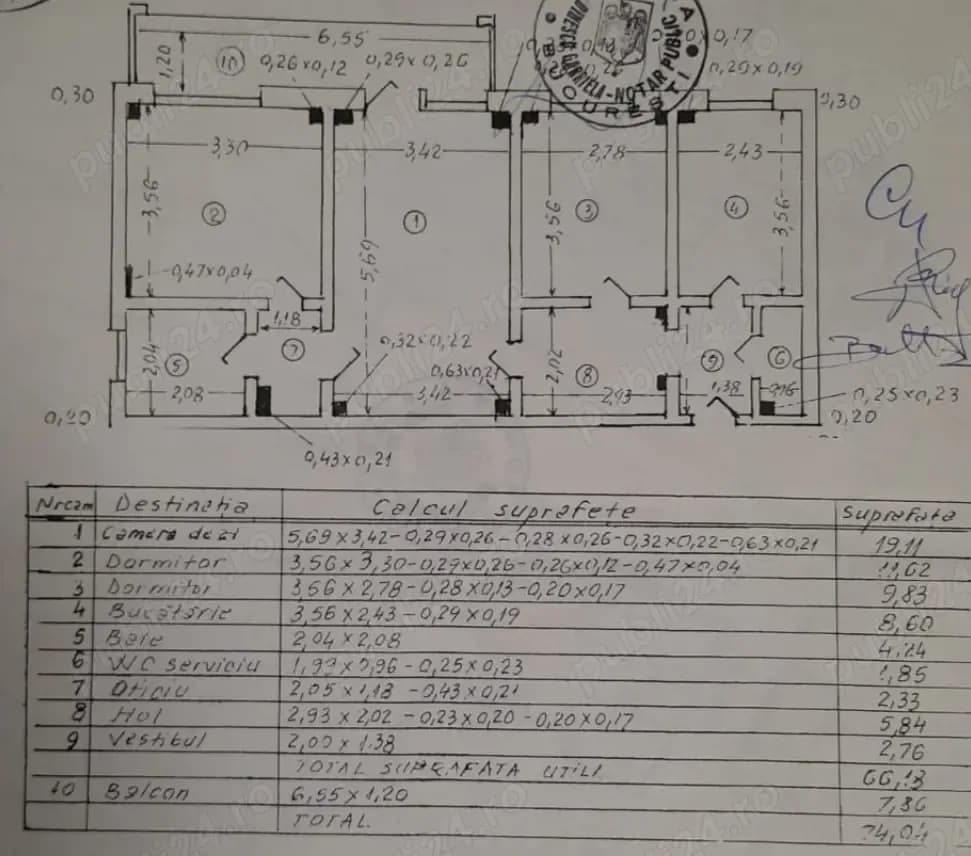 6,55
1,20
10
0,26x0,12
0,29x0,26
0,17
0,29x0,19
DINESCU GABRIELA-NOTAR PUBLIC
BUCUREȘTI
0,30
0,30
3,30
3,42
2,78
2,43
3,56
2
1
3
4
3,56
3,56
5,69
0,47x0,04
1,18
2,04
5
7
0,32x0,22
0,63x0,21
2,02
8
9
6
2,08
3,42
2,93
1,38
0,96
0,25x0,23
0,20
0,20
0,43x0,21
Nrcam Destinația Calcul suprafețe Suprafata
1 Camera de zi 5,69x3,42-0,29x0,26-0,28x0,26-0,32x0,22-0,63x0,21 19,11
2 Dormitor 3,56x3,30-0,29x0,26-0,26x0,12-0,47x0,04 11,62
3 Dormitor 3,56x2,78-0,28x0,13-0,20x0,17 9,83
4 Bucătărie 3,56x2,43-0,29x0,19 8,60
5 Baie 2,04x2,08 4,24
6 WC serviciu 1,99x0,96-0,25x0,23 1,85
7 Oficiu 2,05x1,18-0,43x0,21 2,33
8 Hol 2,93x2,02-0,23x0,20-0,20x0,17 5,84
9 Vestibul 2,00x1,38 2,76
TOTAL SUPRAFATA UTILĂ 66,18
10 Balcon 6,55x1,20 7,86
TOTAL 74,04
publi24.ro